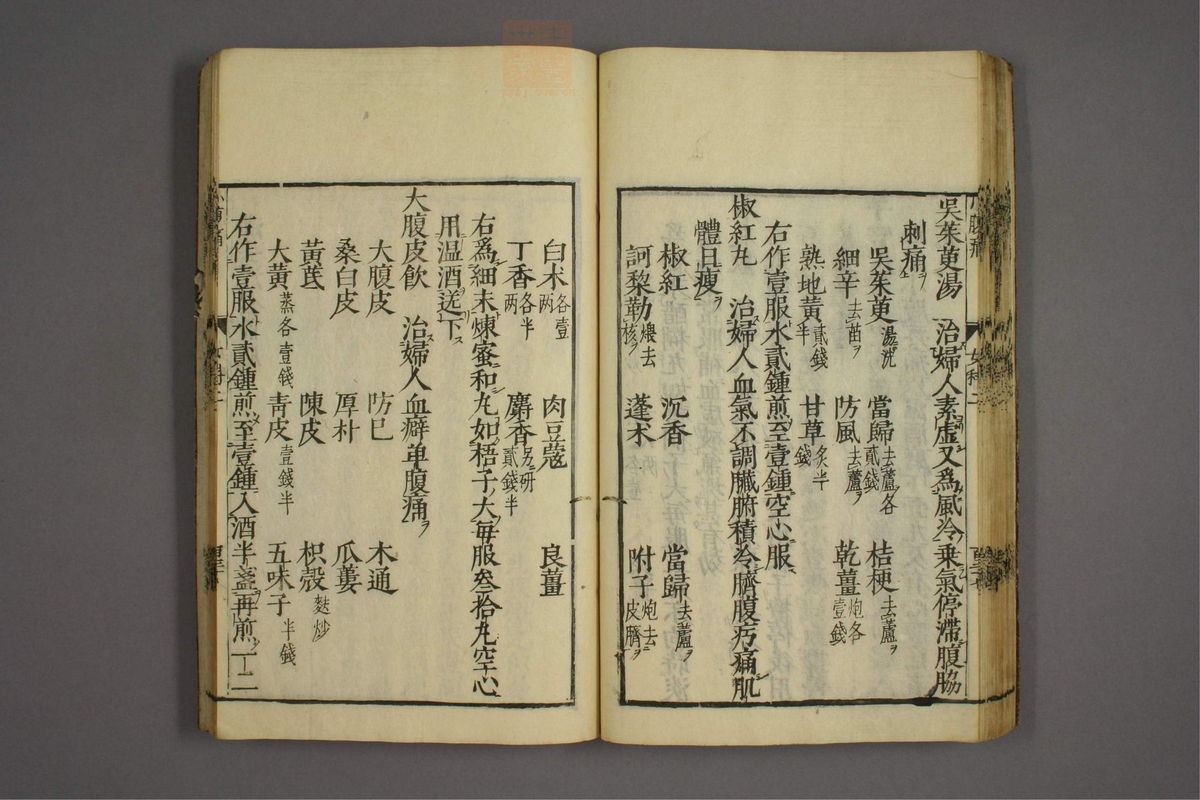 吳茱萸湯 治婦人素虛又爲風冷乘氣停滯腹脇
刺痛ヲ
吳茱萸湯洗 當歸去蘆各貳錢 桔梗去蘆ヲ
細辛去苗ヲ 防風去蘆ヲ 乾薑炮各壹錢
熟地黃貳錢半 甘草炙半錢
右作壹服水貳鍾煎至壹鍾空心服
椒紅丸 治婦人血氣不調臟腑積冷臍腹疞痛肌
體日瘦ヲ
椒紅 沉香 當歸去蘆ヲ
訶黎勒煨去核ヲ 蓬朮 附子炮去皮臍ヲ
白朮各壹兩 肉豆蔻 良薑
丁香各半兩 麝香另研貳錢半
右爲細末煉蜜和丸如梧子大每服叄拾丸空心
用温酒送下ス
大腹皮飲 治婦人血癖單腹痛ヲ
大腹皮 防已 木通
桑白皮 厚朴 瓜蔞
黃芪 陳皮 枳殼麩炒
大黃蒸各壹錢 青皮壹錢半 五味子半錢
右作壹服水貳鍾煎至壹鍾入酒半盞再煎一二
女科二